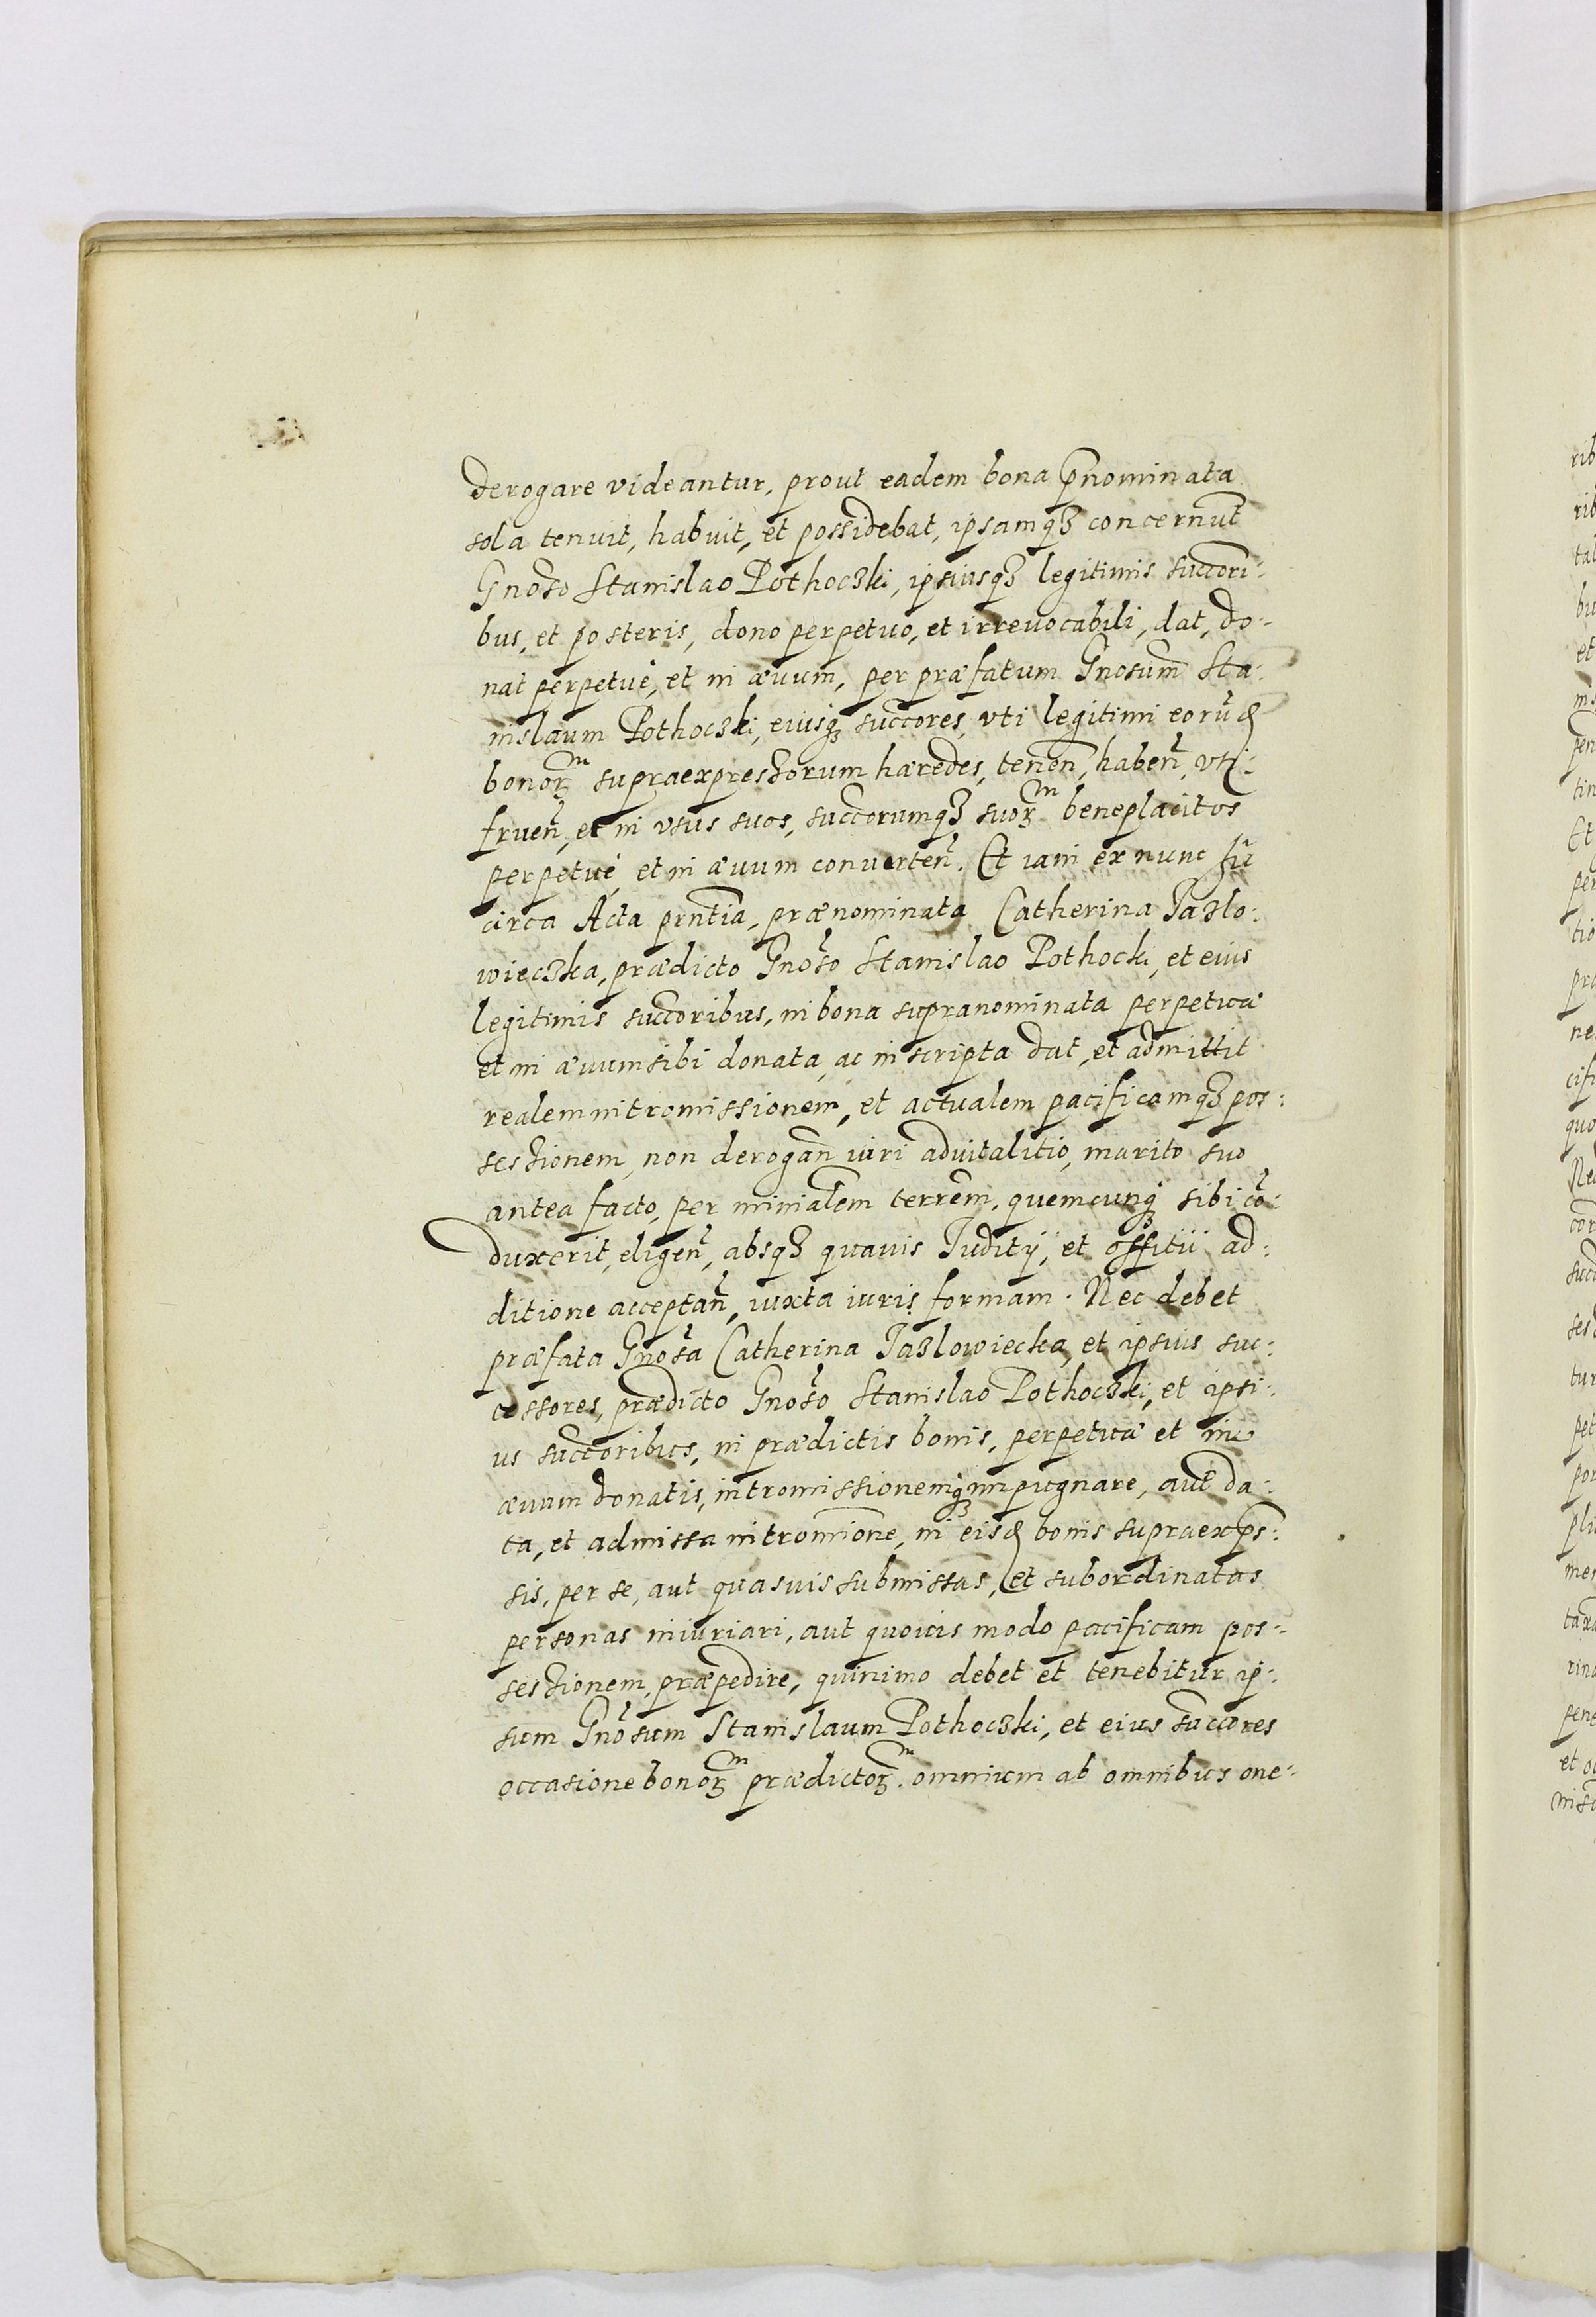 derogare videantur, prout eadem bona p̄nominata
sola tenuit, habuit, et possidebat, ipsamqꝫ concernūt
Gnoso Stanislao Pothoczki, ipsiusqꝫ legitimis succori:
bus, et posteris, dono perpetuo, et irreuocabili, dat, do:
nat perpetuè, et in æuum, per præfatum Gnosum Sta:
nislaum Pothoczki, eiusqꝫ succores, vti legitimi eorūd
bonorꝫ supraexpressorum hæredes, tenen̄, haben̄, vti:
fruen̄, et in vsus suos, succorumqꝫ suorꝫ beneplacitos
perpetuè, et in æuum conuerten̄. Et iam ex nunc
circa Acta pr̄ntia, prænominata Catherina Jazlo:
wieczka, prædicto Gnoso Stanislao Pothocki, et eius
legitimis succoribus, in bona supranominata perpetuæ
et in æuum sibi donata, ac inscripta dat, et admittit
realem intromissionem, et actualem pacificamqꝫ pos:
sessionem, non derogan̄ iuri aduitalitio, marito suo
antea facto, per ministialem terrēm, quemcunqꝫ sibi cō:
duxerit, eligen̄, absqꝫ quauis Juditij, et offitii ad:
ditione acceptan̄, iuxta iuris formam. Nec debet
præfata Gnosa Catherina Jazlowiecka, et ipsius suc:
cessores, prædicto Gnoso Stanislao Pothoczki, et ipsi:
us succoribus, in prædictis bonis, perpetuæ et in
æuum donatis, intromissionemqꝫ impugnare, aut da:
ta, et admissa intromīone, in eisd bonis supraexp̄s:
sis, per se, aut quasuis submissas, et subordinatas
personas iniuriari, aut quouis modo pacificam pos:
sessionem, præpedire, quinimo debet et tenebitur ip:
sum Gnosum Stanislaum Pothoczki, et eius succores
occasione bonorꝫ prædictorꝫ omnium ab omnibus one: